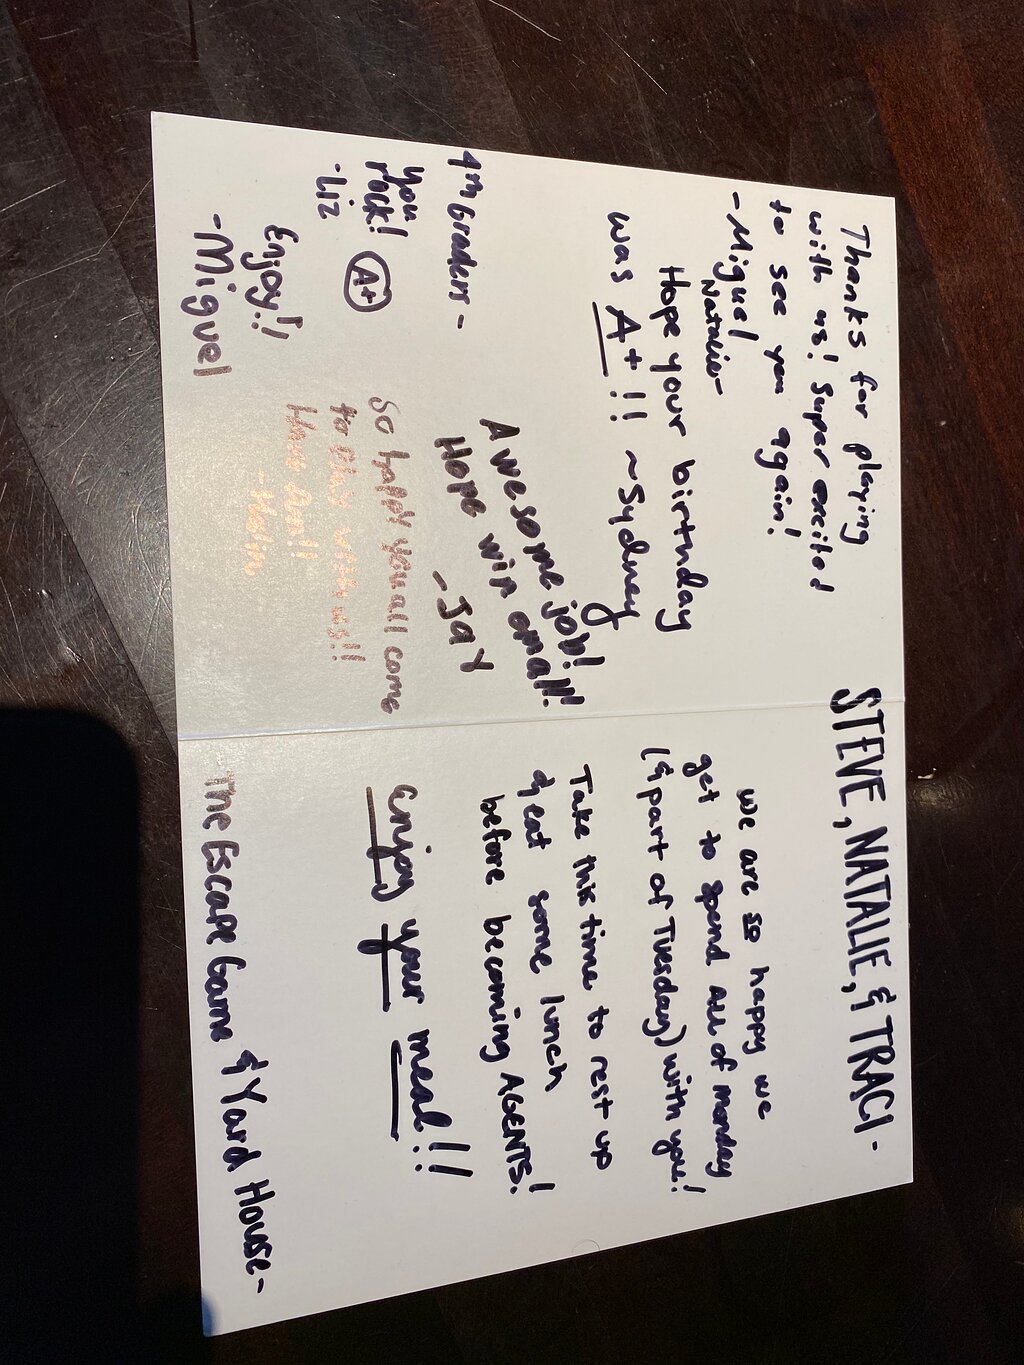 Thanks for playing
with us! Super excited
to see you again!
-Miguel
Natalie-
Hope your birthday
was A+!! ~Sydney
Awesome job!
Hope win em all!
-Jay
4th Graders-
You
rock!
-Liz
A+
So happy you all come
to play with us!!
Have fun!!
Enjoy!!
-Miguel
STEVE, NATALIE, & TRACI-
we are so happy we
get to spend all of monday
(& part of Tuesday) with you!
Take this time to rest up
& eat some lunch
before becoming AGENTS!
enjoy your meal!!
The Escape Game & Yard House-